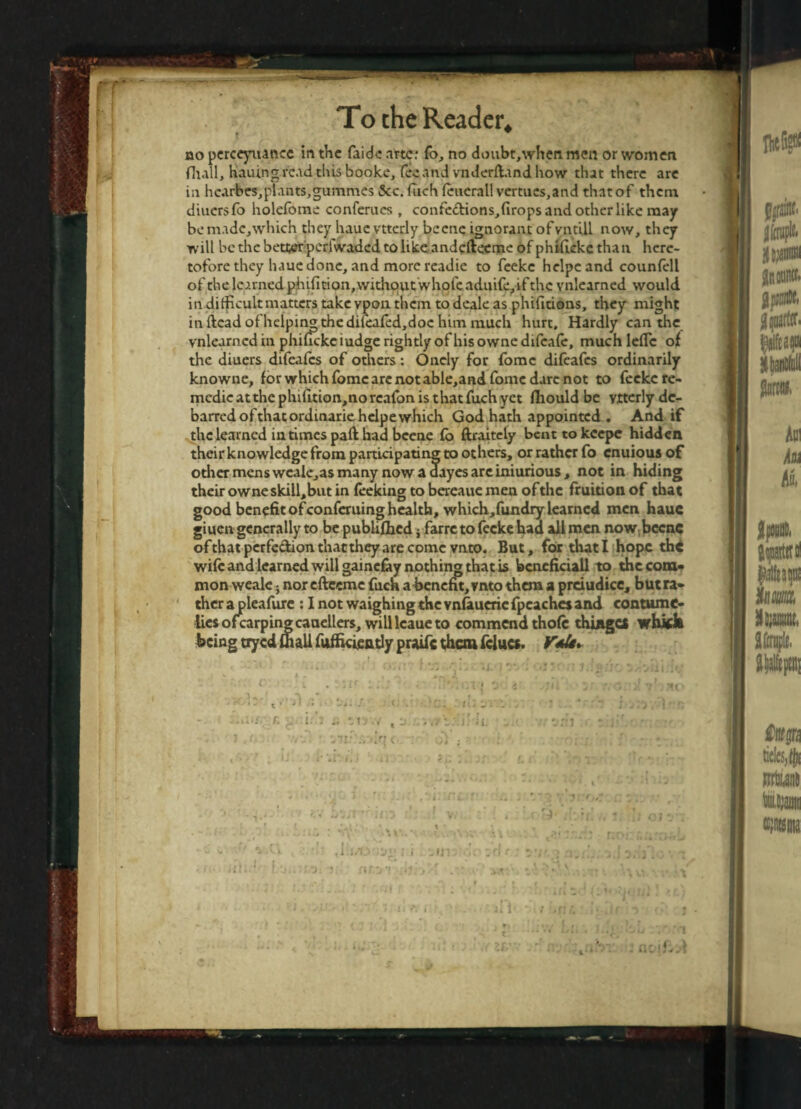 To the Reader.
no perceyuance in the saide arte: so, no doubt, when men or women
shall, hauing read this booke, see and vnderstand how that there are
in hearbes, plants, gummes &c. such seuerall vertues, and that of them
diuers so holesome conserues, confections, sirops and other like may
be made, which they haue vtterly beene ignorant of vntill now, they
will be the better perswaded to like and esteeme of phisicke than here-
tofore they haue done, and more readie to seeke helpe and counsell
of the learned phisition, without whose aduise, if the vnlearned would
in difficult matters take vpon them to deale as phisitions, they might
in stead of helping the diseased, doe him much hurt. Hardly can the
vnlearned in phisicke iudge rightly of his owne disease, much lesse of
the diuers diseases of others: Onely for some diseases ordinarily
knowne, for which some are not able, and some dare not to seeke re-
medie at the phisition, no reason is that such yet should be vtterly de-
barred of that ordinarie helpe which God hath appointed. And if
the learned in times past had beene so straitely bent to keepe hidden
their knowledge from participating to others, or rather so enuious of
other mens weale, as many now a dayes are iniurious, not in hiding
their owne skill, but in seeking to bereaue men of the fruition of that
good benefit of conseruing health, which, sundry learned men haue
giuen generally to be published; farre to seeke had all men now beene
of that perfection that they are come vnto. But, for that I hope the
wise and learned will gainesay nothing that is beneficiall to the com-
mon weale; nor esteeme such a benefit, vnto them a preiudice, but ra-
ther a pleasure: I not waighing the vnsauerie speaches and contume-
lies of carping cauellers, will leaue to commend those things which
being tryed shall sufficiently praise them selues. Vale.